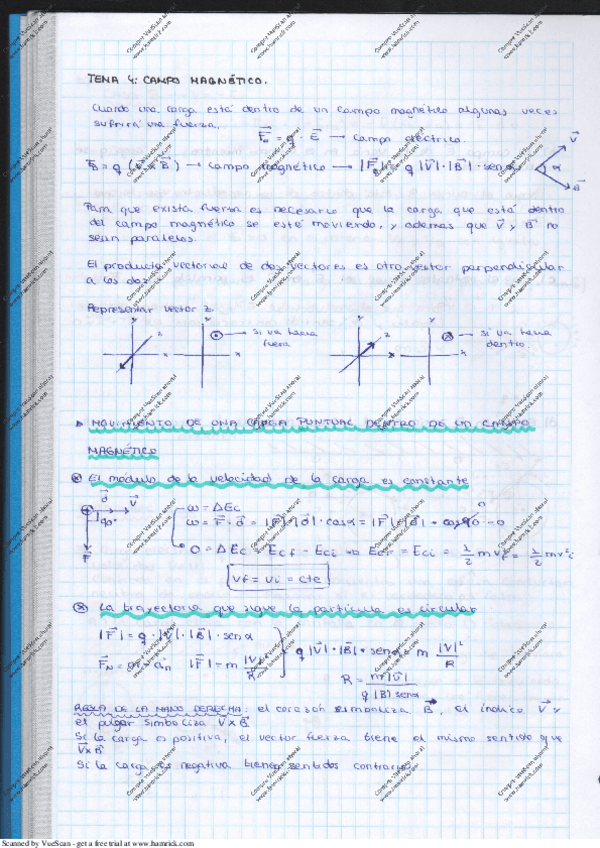 TEMA 4: CAMPO MAGNÉTICO.
Cuando una carga está dentro de un campo magnético algunas veces
sufrirá una fuerza.
F⃗e = q · E⃗ → campo eléctrico.
F⃗B = q (v⃗ × B⃗) → campo magnético → |F⃗B| = q |V⃗| · |B⃗| · sen α
V⃗
α
B⃗
Para que exista fuerza es necesario que la carga que está dentro
del campo magnético se esté moviendo, y ademas que V⃗ y B⃗ no
sean paralelos.
El producto vectorial de dos vectores es otro vector perpendicular
a los dos.
Representar vector z.
y z x
y x → si va hacia
fuera
y z x
y x → si va hacia
dentro.
MOVIMIENTO DE UNA CARGA PUNTUAL DENTRO DE UN CAMPO
MAGNÉTICO
El modulo de la velocidad de la carga es constante
d⃗ V⃗
90°
F⃗
ω = ΔEc
ω = F⃗ · d⃗ = |F⃗| · |d⃗| · cos α = |F⃗| · |d⃗| · cos 90 = 0
0
0 = ΔEc = Ecf - Eci ⇒ Ecf = Eci = 1/2 m v²f = 1/2 m v²i
Vf = Vi = cte
La trayectoria que sigue la partícula es circular
|F⃗| = q · |V⃗| · |B⃗| · sen α
F⃗N = m · a⃗n |F⃗| = m |V|²/R
q |V⃗| · |B⃗| · sen α = m |V⃗|²/R
R = m |V⃗| / q |B| sen α
REGLA DE LA MANO DERECHA: el corazón simboliza B⃗, el índice V⃗ y
el pulgar simboliza V⃗ × B⃗
Si la carga es positiva, el vector fuerza tiene el mismo sentido que
V⃗ × B⃗
Si la carga es negativa tienen sentidos contrarios.
Scanned by VueScan - get a free trial at www.hamrick.com